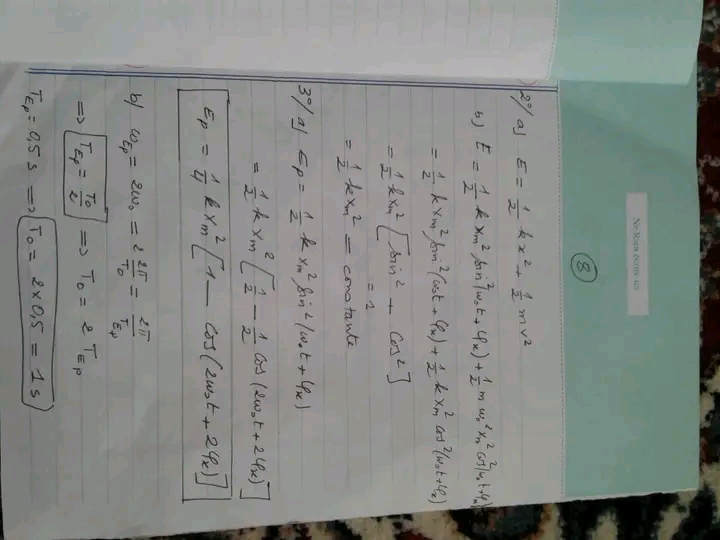 Ne Rien écrire ici
8
2°/ a) E = 1/2 k x² + 1/2 m v²
b) E = 1/2 k Xm² sin²(ω₀t + φx) + 1/2 m ω₀² Xm² cos²(ω₀t + φx)
= 1/2 k Xm² sin²(ω₀t + φx) + 1/2 k Xm² cos²(ω₀t + φx)
= 1/2 k Xm² [sin² + cos²]
= 1
= 1/2 k Xm² = constante
3°/ a) Ep = 1/2 k Xm² sin²(ω₀t + φx)
= 1/2 k Xm² [1/2 − 1/2 cos(2ω₀t + 2φx)]
Ep = 1/4 k Xm² [1 − cos(2ω₀t + 2φx)]
b) ωEp = 2ω₀ = 2 2π/T₀ = 2π/TEp
⇒ TEp = T₀/2 ⇒ T₀ = 2 TEp
TEp = 0,5 s ⇒ T₀ = 2 × 0,5 = 1 s